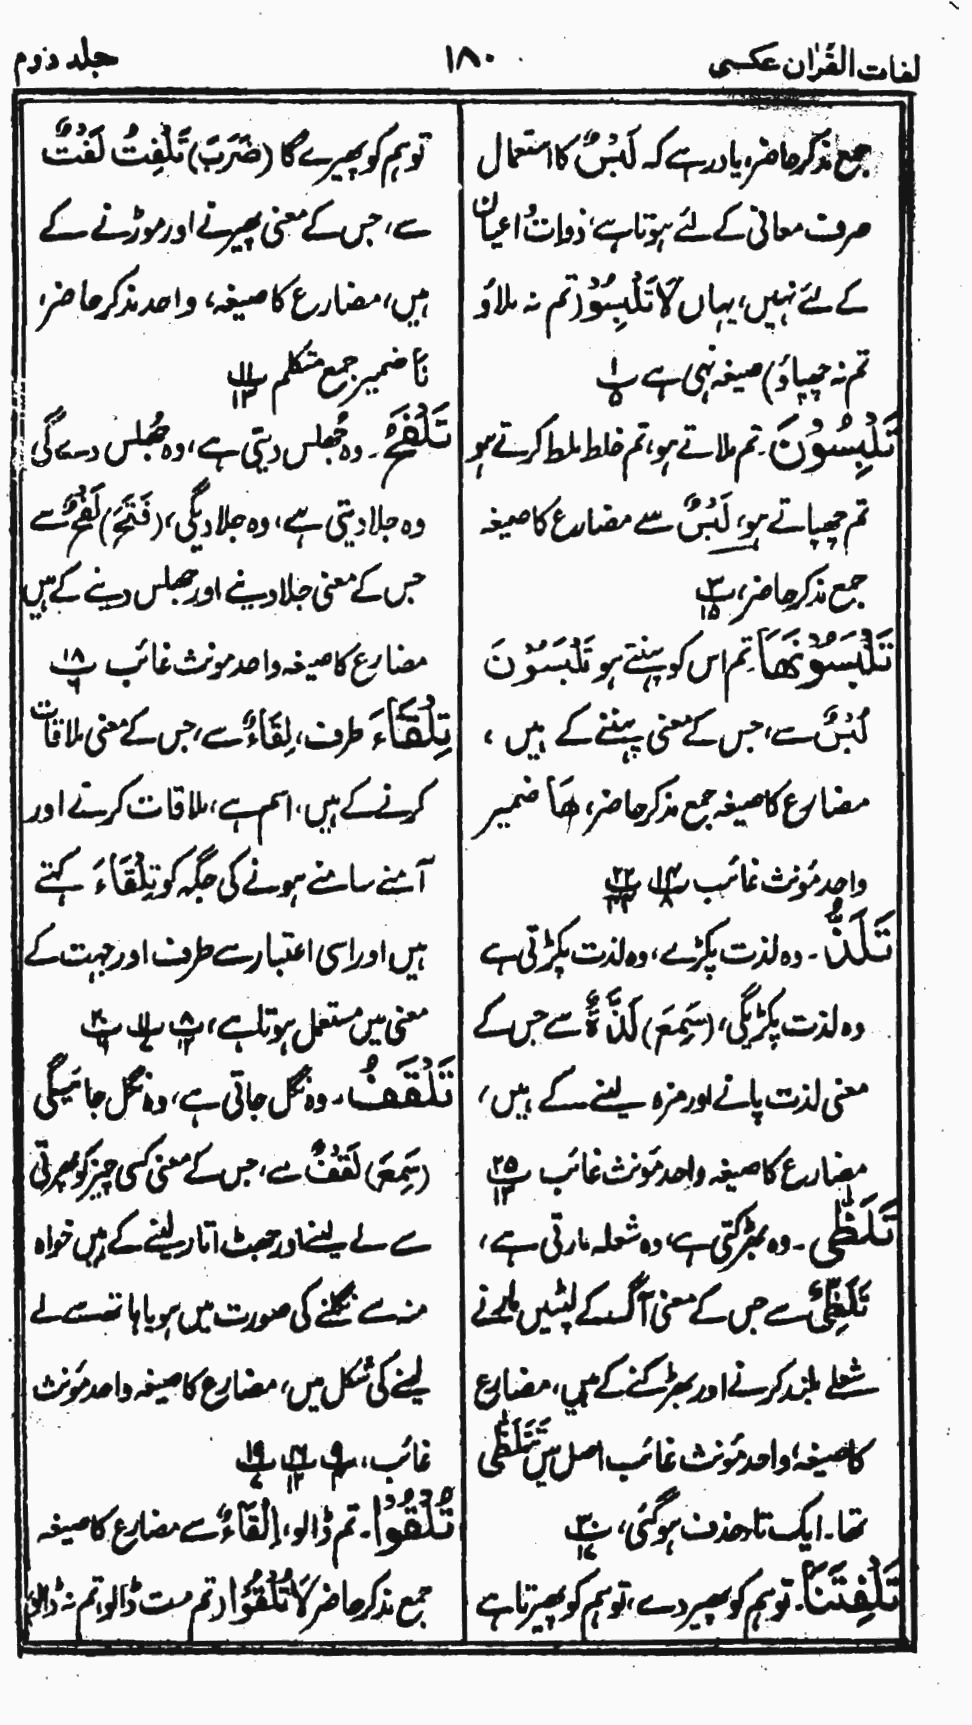 لغات القرآن عکسی
۱۸۰
جلد دوم
جمع مذکر حاضر، یاد رہے کہ لَبْسٌ کا استعمال
صرف معانی کے لئے ہوتا ہے، ذوات و اعیان
کے لئے نہیں، یہاں لَا تَلْبِسُوْا (تم نہ ملاؤ
تم نہ چھپاؤ) صیغہ نہی ہے پ ۱ ۵
تَلْبِسُوْنَ۔ تم ملاتے ہو، تم خلط ملط کرتے ہو
تم چھپاتے ہو، لَبْسٌ سے مضارع کا صیغہ
جمع مذکر حاضر، پ ۳ ۱۵
تَلْبَسُوْنَهَا تم اس کو پہنتے ہو تَلْبَسُوْنَ
لُبْسٌ سے، جس کے معنی پہننے کے ہیں ،
مضارع کا صیغہ جمع مذکر حاضر، ھَا ضمیر
واحد مؤنث غائب پ ۱۴ ۸، پ ۲۲
تَلَذُّ۔ وہ لذت پکڑے، وہ لذت پکڑتی ہے
وہ لذت پکڑیگی، (سَمِعَ) لَذَّةٌ سے جس کے
معنی لذت پانے اور مزہ لینے کے ہیں،
مضارع کا صیغہ واحد مؤنث غائب پ ۲۵ ۱۳
تَلَظّٰى۔ وہ بھڑکتی ہے، وہ شعلہ مارتی ہے،
تَلَظِّیٌ سے جس کے معنی آگ کے لپٹیں مارنے
شعلے بلند کرنے اور بھڑکنے کے ہیں، مضارع
کا صیغہ، واحد مؤنث غائب اصل میں تَتَلَظّٰى
تھا۔ ایک تا حذف ہوگئی، پ ۳۰ ۱۷
تَلْفِتَنَا۔ تو ہم کو پھیر دے، تو ہم کو پھیرتا ہے
تو ہم کو پھیرے گا (ضَرَبَ) تَلْفِتُ لَفْتٌ
سے، جس کے معنی پھیرنے اور موڑنے کے
ہیں، مضارع کا صیغہ، واحد مذکر حاضر،
نَا ضمیر جمع متکلم پ ۱۱ ۱۳
تَلْفَحُ۔ وہ جھلس دیتی ہے، وہ جھلس دے گی
وہ جلا دیتی ہے، وہ جلا دیگی، (فَتَحَ) لَفْحٌ سے
جس کے معنی جلا دینے اور جھلس دینے کے ہیں
مضارع کا صیغہ واحد مونث غائب پ ۱۸ ۶
تِلْقَآءَ طرف، لِقَاءٌ سے، جس کے معنی ملاقات
کرنے کے ہیں، اسم ہے، ملاقات کرتے اور
آمنے سامنے ہونے کی جگہ کو تِلْقَاءَ کہتے
ہیں اور اسی اعتبار سے طرف اور جہت کے
معنی میں مستعمل ہوتا ہے، پ ۸ ۱۲ پ ۱۱ ۷ پ ۲۰ ۶
تَلْقَفُ۔ وہ نگل جاتی ہے، وہ نگل جائیگی
(سَمِعَ) لَقَفٌ سے، جس کے معنی کسی چیز کو پھرتی
سے لے لینے اور جھپٹ اتار لینے کے ہیں خواہ
منہ سے نگلنے کی صورت میں ہو یا ہاتھ سے لے
لینے کی شکل میں، مضارع کا صیغہ واحد مؤنث
غائب، پ ۹ ۴ پ ۱۶ ۱۲ پ ۱۹ ۷
تُلْقُوْا۔ تم ڈالو، اِلْقَاءٌ سے مضارع کا صیغہ
جمع مذکر حاضر لَا تُلْقُوْا (تم مت ڈالو، تم نہ ڈالو)